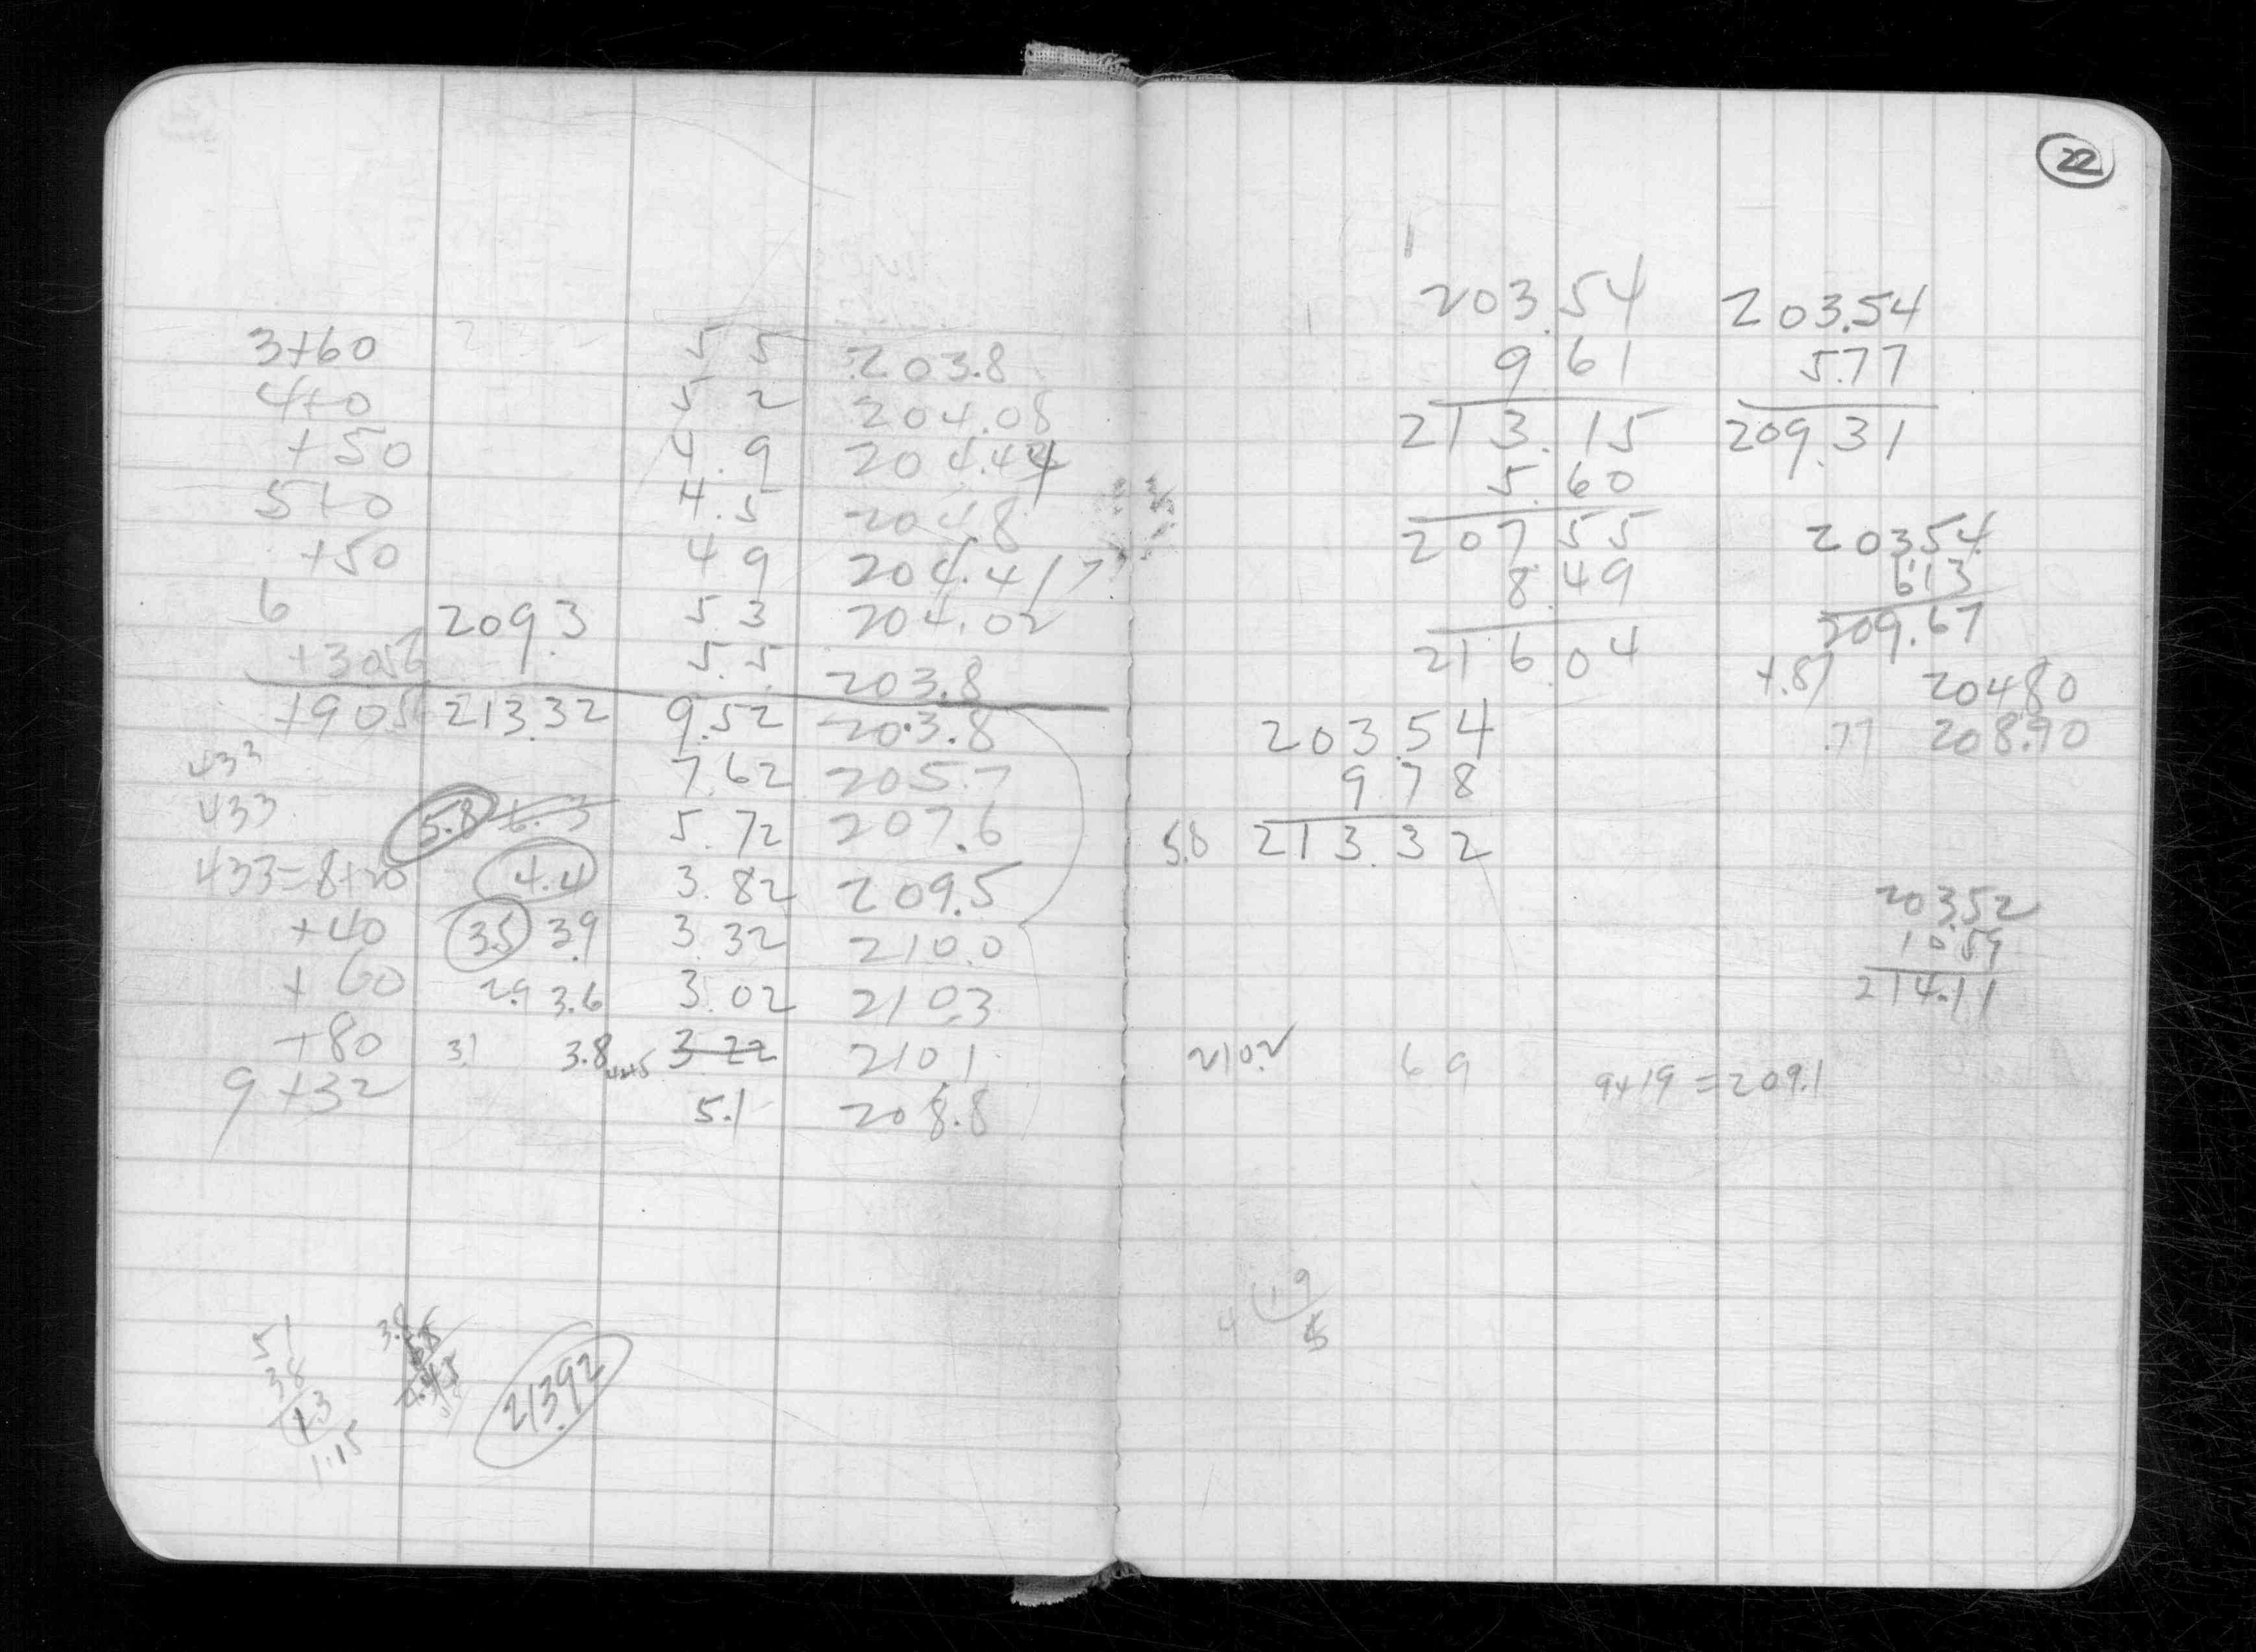 3+60 5 5 203.8
4+0 5 2 204.08
+50 4.9 204.44
5+0 4.5 204.8
+50 4 9 204.4/7
6 209.3 5.3 204.02
+30.56 5.5 203.8
+90.56 213.32 9.52 203.8
433 7.62 205.7
433 5.8 6.3 5.72 207.6
433=8+20 4.4 3.82 209.5
+40 3.5 3.9 3.32 210.0
+60 2.9 3.6 3.02 210.3
+80 3.1 3.8 3 22 210 1
9 +32 5.1 208.8
51
38
13
1.15
3.8
213.92
22
203.54 203.54
9.61 5.77
213.15 209.31
5.60
207.55
8.49
216.04
203.54
6.13
209.67
+.81 204.80
.77 208.90
203.54
9.78
5.8 213.32
203.52
10.59
214.11
210.2 6 9 9+19 = 209.1
4 19
5